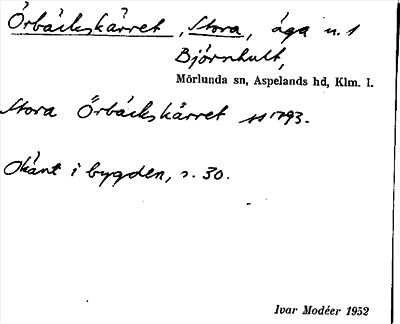 Örbäckskärret, Stora, äga n. 1
Björnhult,
Mörlunda sn, Aspelands hd, Klm. l.
Stora Örbäckskärret 1793.
Okänt i bygden, s. 30.
Ivar Modéer 1952